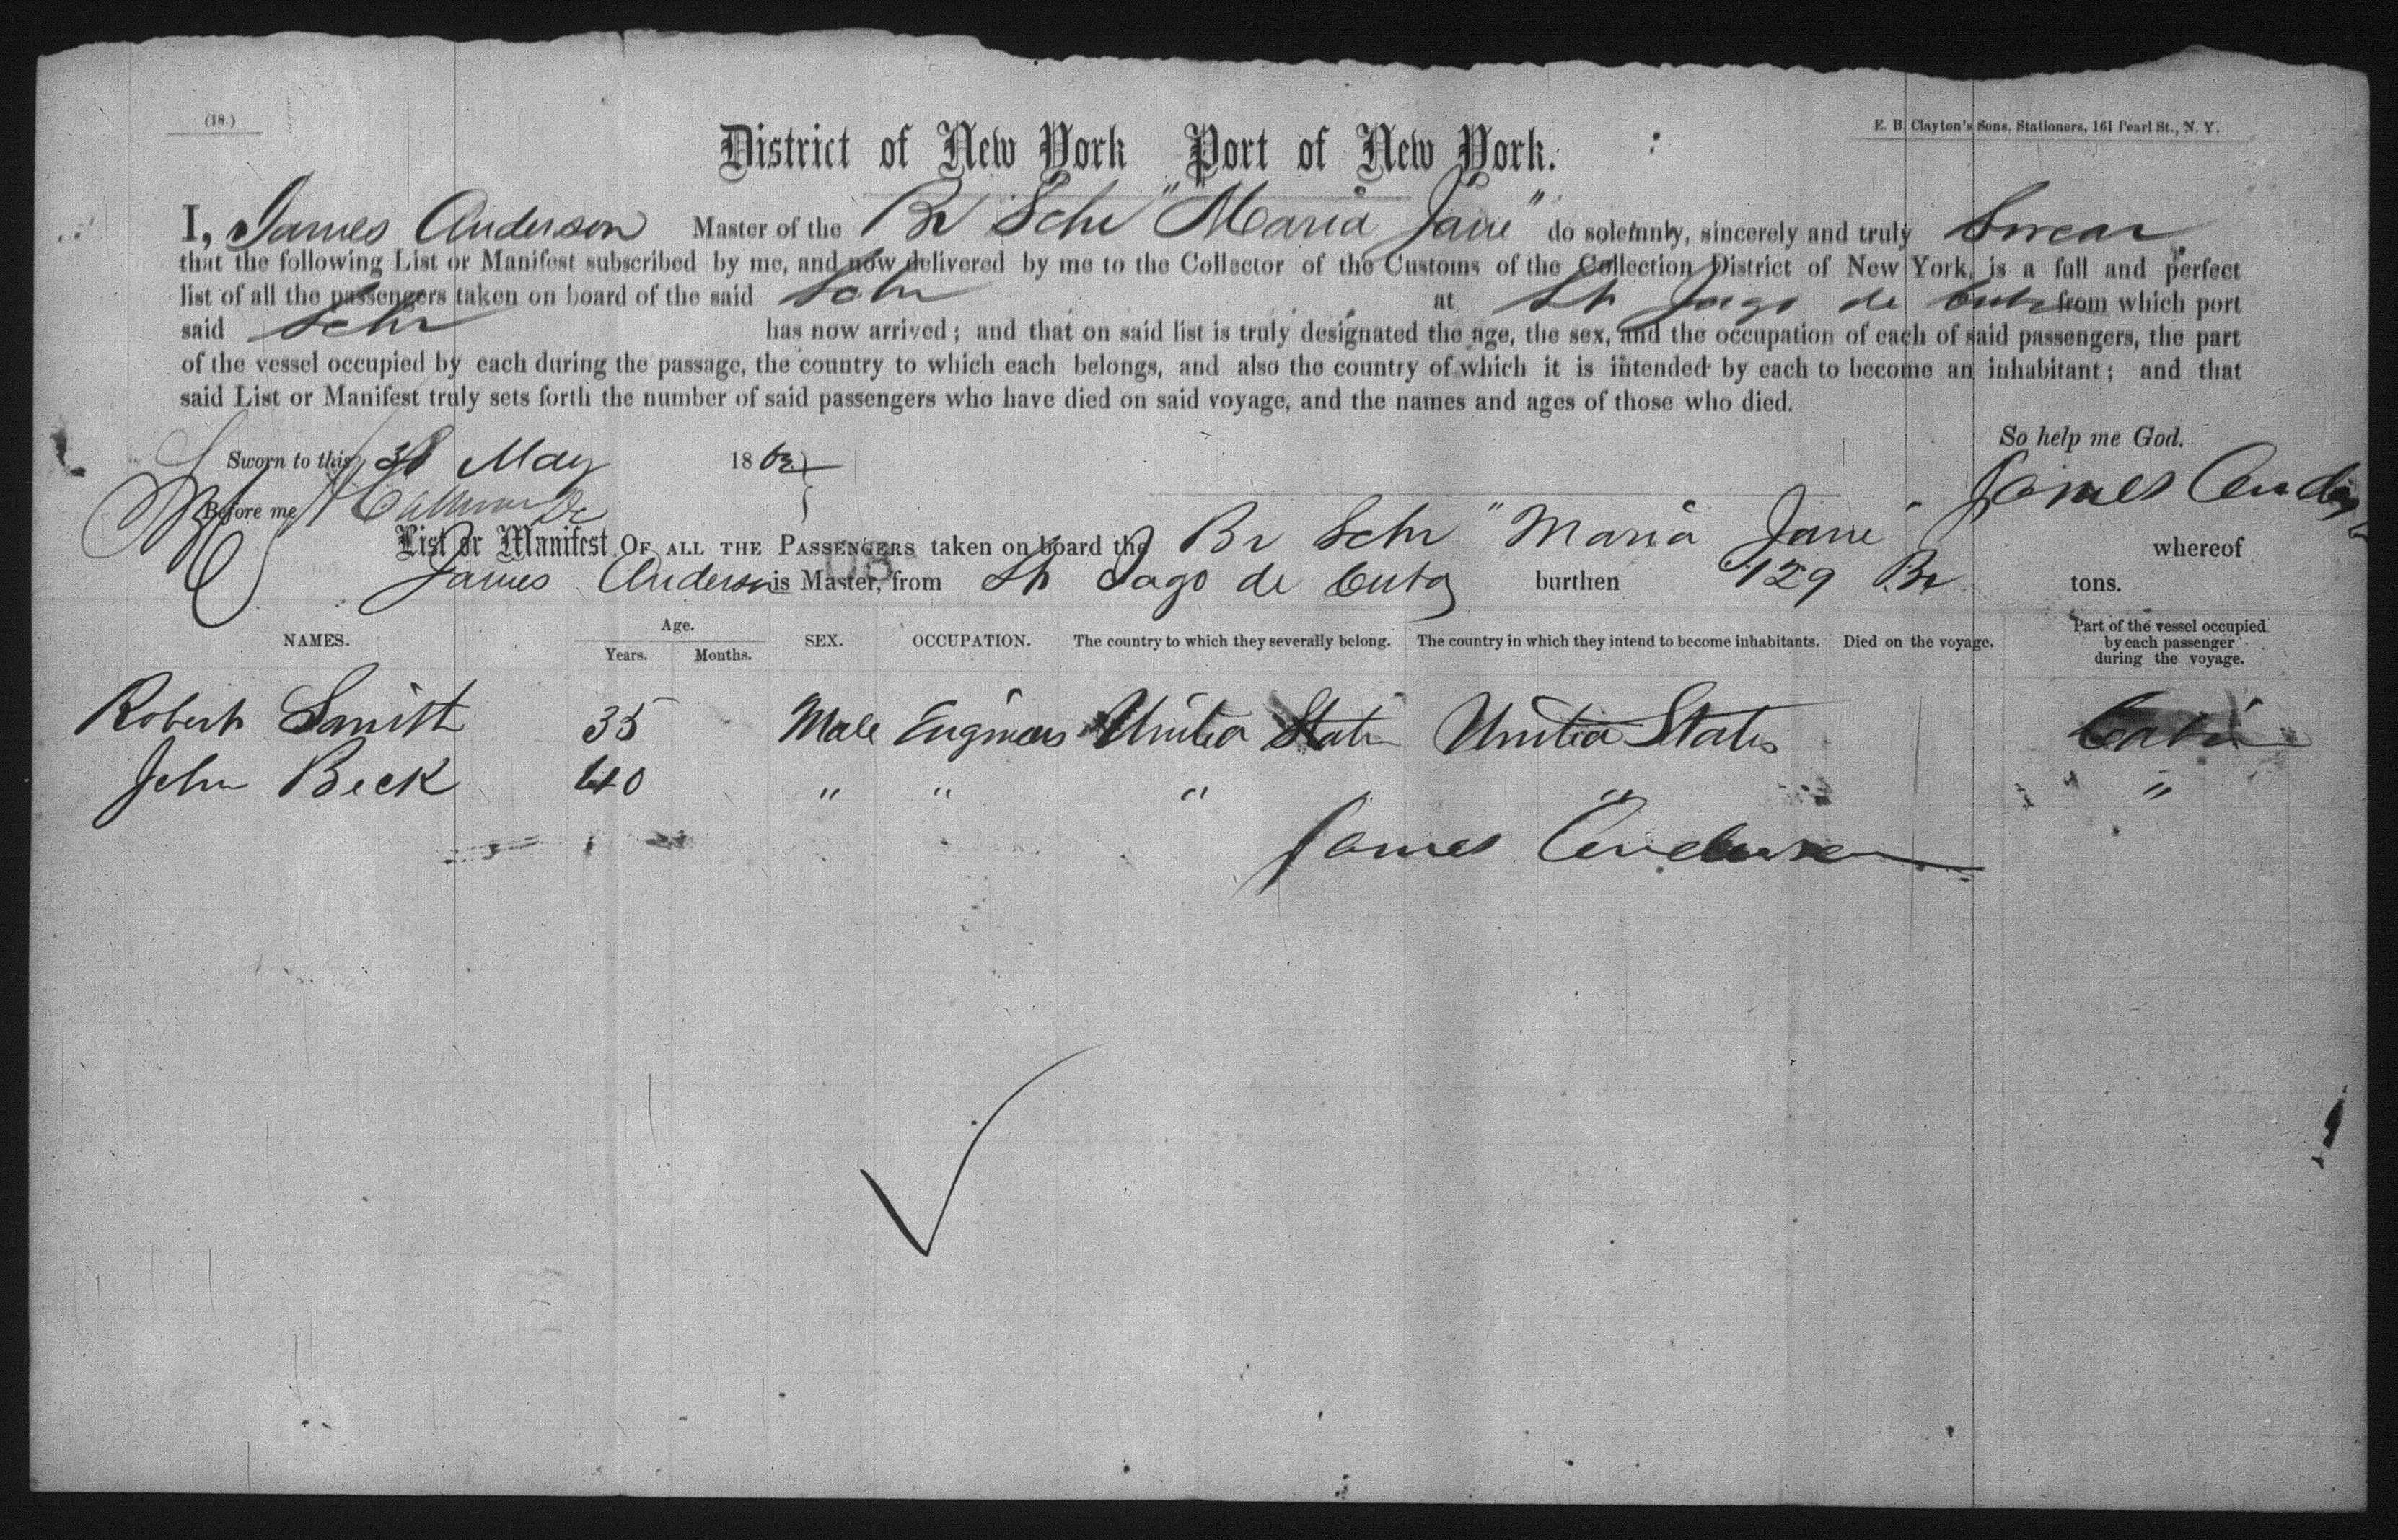 (18.)
E. B. Clayton's Sons, Stationers, 161 Pearl St., N. Y.
District of New York Port of New York.
I, James Anderson Master of the Br Schr "Maria Jane" do solemnly, sincerely and truly Swear
that the following List or Manifest subscribed by me, and now delivered by me to the Collector of the Customs of the Collection District of New York, is a full and perfect
list of all the passengers taken on board of the said Schr at St Jago de Cuba from which port
said Schr has now arrived; and that on said list is truly designated the age, the sex, and the occupation of each of said passengers, the part
of the vessel occupied by each during the passage, the country to which each belongs, and also the country of which it is intended by each to become an inhabitant; and that
said List or Manifest truly sets forth the number of said passengers who have died on said voyage, and the names and ages of those who died.
So help me God.
Sworn to this May 186
James Anders
Before me
List or Manifest OF ALL THE PASSENGERS taken on board the Br Schr "Maria Jane" whereof
James Anderson is Master, from St Jago de Cuba burthen 129 Br tons.
NAMES. Age. Years. Months. SEX. OCCUPATION. The country to which they severally belong. The country in which they intend to become inhabitants. Died on the voyage. Part of the vessel occupied by each passenger during the voyage.
Robert Smith 35 Male Engineers United States United States Cabin
John Beck 40 " " " " "
James Anderson